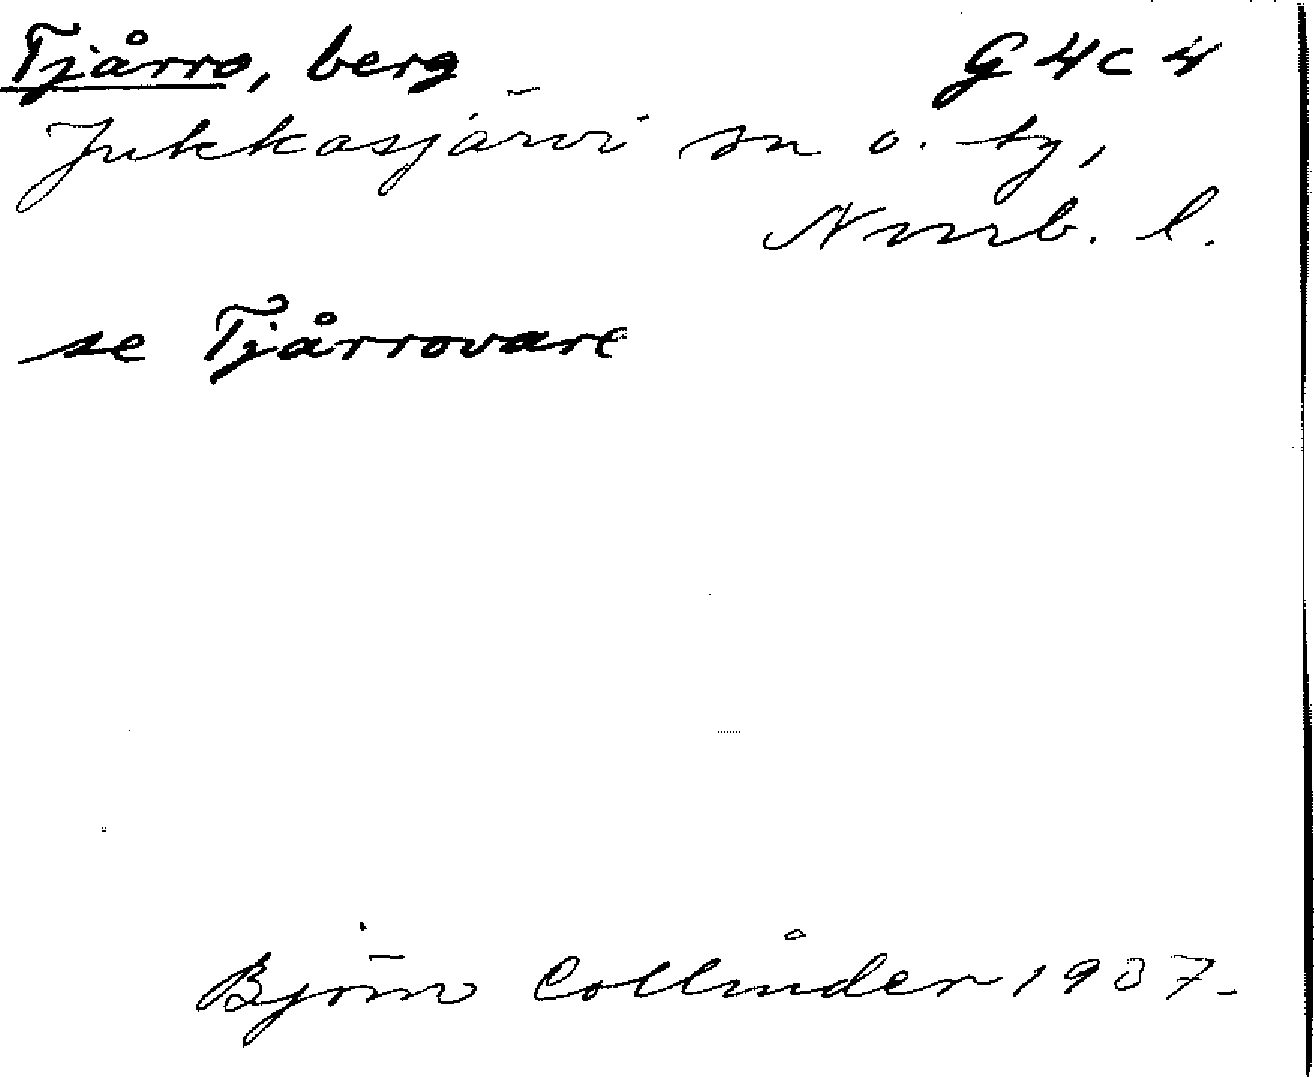 Tjårro, berg G4c4
Jukkasjärvi sn o. tg,
Norrb. l.
se Tjårrovare
Björn Collinder 1937.